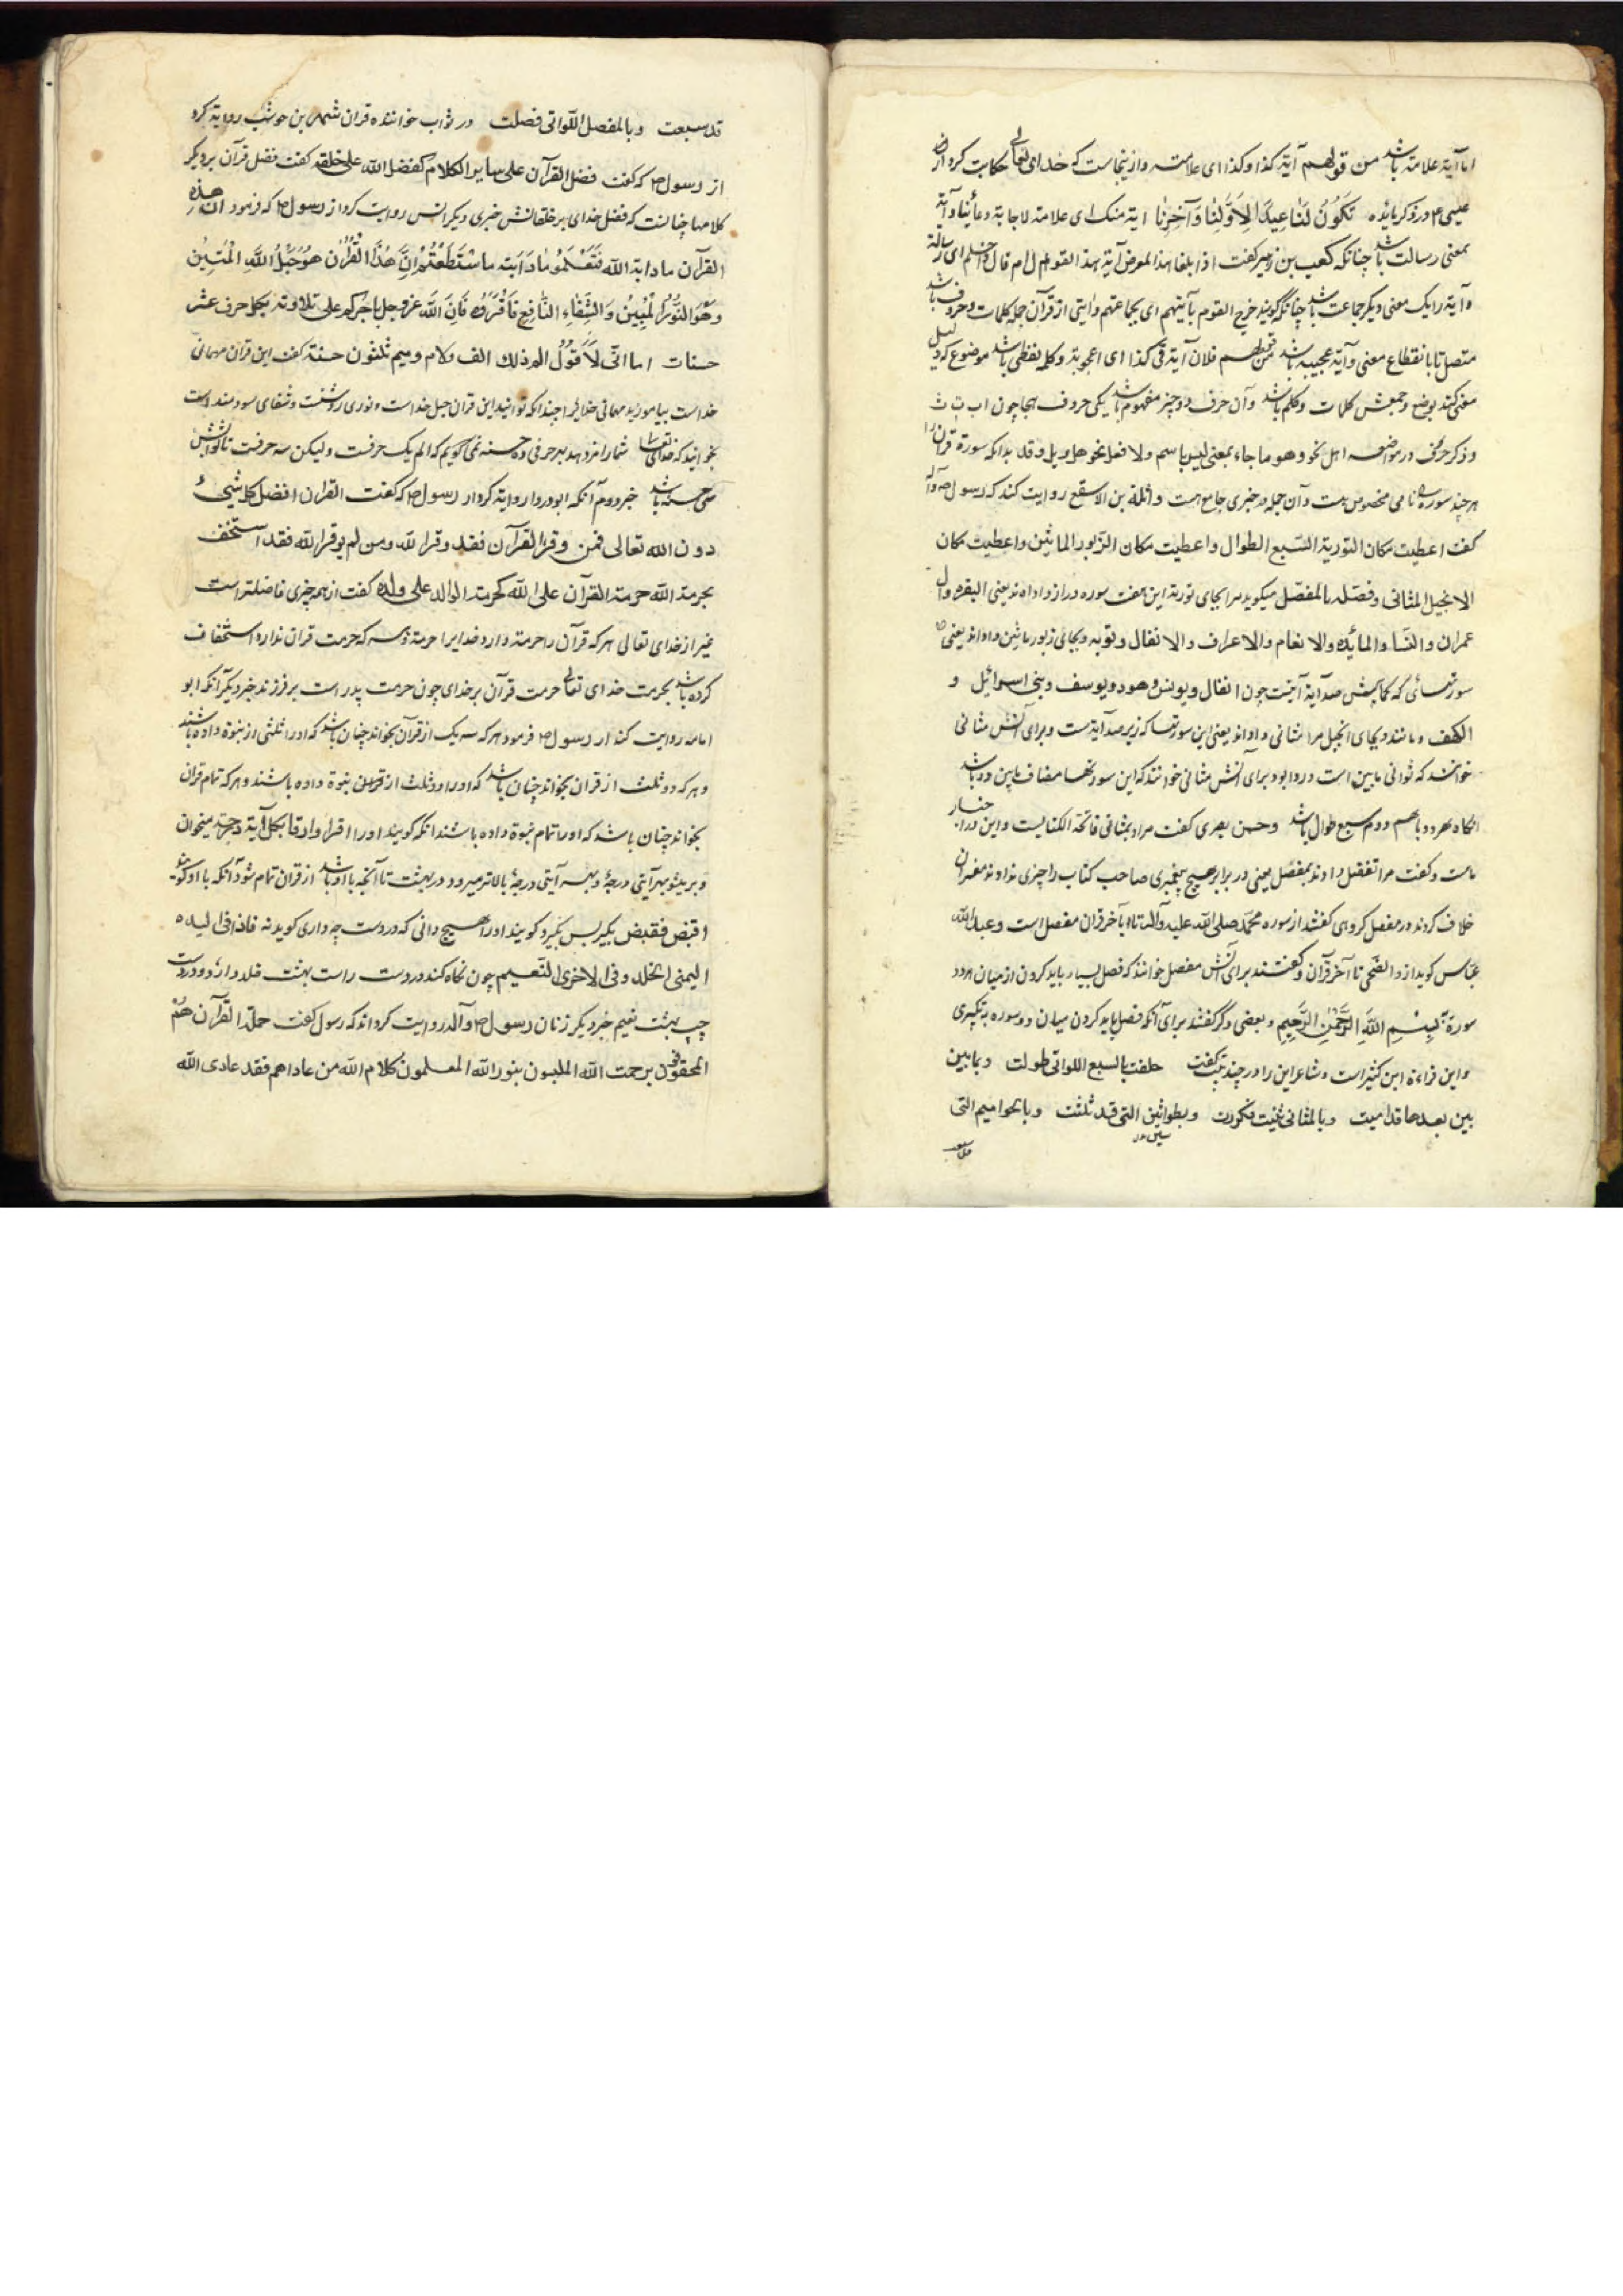 اما آیة علامته باشد من قولهم آیة کذا و کذا ای علامته و از ینجاست که خدای تعالی حکایت کرد از
عیسی ع م در ذکر مائده تَکُونُ لَنَا عِیدًا لِاَوَّلِنَا وَآخِرِنَا ایة منک ای علامته لاجابة دعائنا و آیة
بمعنی رسالت باشد چنانکه کعب بن زهیر گفت اذا بلغا هذا المعرض آیة هذا القوم ام قال ای رسالة
و آیة را یک معنی دیگر جماعت باشد چنانکه گویند خرج القوم بآیتهم ای بجماعتهم و ایتی از قرآن جمله کلمات و حروف باشد
متصل تا بانقطاع معنی و آیة عجیبه باشد من قولهم فلان آیة فی کذا ای اعجوبة و کلمه لفظی باشد موضوع که دلیل
معنی کند بوضع و جمعش کلمات و کلم باشد و آن حرف دو چیز مفهوم باشد یکی حروف هجا چون اب ت ث
و ذکر حرفی در مواضعه اهل نحو و هو ما جاء بمعنی لیس باسم ولا فعل نحو هل و بل و قد بدانکه سورة قران را
هر چند سوره نامی مخصوص هست و آن جمله در خبری جامع هست واثلة بن الاسقع روایت کند که رسول ص و آله
گفت اعطیت مکان التوریة السّبع الطوال و اعطیت مکان الزّبور المائین و اعطیت مکان
الانجیل المثانی و فضّله بالمفصّل میکوید مرا بجای توریة این هفت سوره دراز داده اند یعنی البقره و ال
عمران و النّساء و المائده و الانعام و الاعراف و الانفال و توبه و بجای زبور مائین داده اند یعنی
سورتهائی که کمابیش صد آیة آیتست چون انفال و یونس و هود و یوسف و بنی اسرائیل و
الکهف و مانند و بجای انجیل مرا مثانی داده اند یعنی این سورتها که زیر صد آیة است و برای آنش مثانی
خوانند که ثوانی مایین است در دو ابو و برای آنش مثانی خوانند که این سورتها مضاف مایین دوم باشد
انگاه هر دو باهم دوم سبع طوال باشد و حسن بصری گفت مراد بمثانی فاتحة الکتابست و این در اخبار
ماست و گفت مرا تفضیل دادند بمفصّل یعنی در برابر هیچ پیغمبری صاحب کتاب را چیزی ندادند مفسران
خلاف کردند در مفصل گروهی گفتند از سوره محمّد صلی الله علیه و آله تا بآخر قران مفصل است و عبدالله
عبّاس کوید از والضّحی تا آخر قرآن و گفتند برای آنش مفصل خوانند که فصل بسیار باید کردن از میان هر دو
سورة بِسْمِ اللّٰهِ الرَّحْمٰنِ الرَّحِیمِ و بعضی دگر گفتند برای آنکه فصل باید کردن میان دو سوره به تکبیری
و این قراءة ابن کثیر است و شاعر این را در چند بیت گفت حلفت بالسبع اللواتی طولت و بمایین
بین بعدها قد امیت وبالمثانی ثنیت فکررت وبطواسین التی قد ثلثت وبالحوامیم التی
قد سبعت وبالمفصل اللّواتی فصلت در ثواب خواننده قران شهر بن حوشب روایة کرد
از رسول ص که گفت فضل القرآن علی سایر الکلام کفضل الله علی خلقه گفت فضل قرآن بر دیگر
کلامها چنانست که فضل خدای بر خلقانش خبری دیگر انس روایت کرد از رسول ص که فرمود ان هذه
القرآن مادبة الله فَتَعَلَّمُوا مادَبَته ما اسْتَطَعْتُمْ اِنَّ هٰذَا الْقُرْآنَ هُوَ حَبْلُ اللّٰهِ الْمَتِینُ
وَهُوَ النُّورُ الْمُبِینُ وَالشِّفَاءِ النَّافِعِ فَاقْرَؤُهُ فَاِنَّ اللّٰهَ عز و جل یاجرکم علی تلاوته بکل حرف عشر
حسنات اما انّی لَا اَقُولُ الم ذلک الف و لام و میم ثلثون حسنة گفت این قران مهمانی
خداست بیاموزید مهمانی خدایرا چندانکه توانید این قران حبل خداست و نوری روشنست و شفای سودمند است
بخوانید که خدای تعالی شما را مزد دهد بهر حرفی ده حسنه نمی گویم که الم یک حرفست و لیکن سه حرفست تا ثوابش
سی حسنه باشد خبر دوم آنکه ابودردا روایة کرد از رسول ص که گفت القران افضل کل شیئ
دون الله تعالی فمن وقر القرآن فقد وقر الله ومن لم یوقر الله فقد استخف
بحرمة الله حرمة القرآن علی الله کحرمة الوالد علی ولده گفت از همه چیزی فاضلتر است
غیر از خدای تعالی هر که قرآن را حرمة دارد خدایرا حرمة و هر که حرمت قران ندارد استخفاف
کرده باشد بحرمت خدای تعالی حرمت قرآن بر خدای چون حرمت پدر است بر فرزند خبر دیگر آنکه ابو
امامه روایت کند از رسول ص فرمود هر که سه یک از قرآن بخواند چنان باشد که او را ثلثی از نبوة داده باشند
و هر که دو ثلث از قران بخواند چنان باشد که او را دو ثلث از قران نبوة داده باشند و هر که تمام قران
بخواند چنان باشد که او را تمام نبوة داده باشند انگه گویند او را اقرا و ارقا بکل آیة درجة میخوان
و بر میشو بهر آیتی درجهٔ و بهر آیتی درجهٔ بالاتر میرود در بهشت تا آنچه با او باشد از قران تمام شود آنگه با او گویند
اقبض فقبض بگیر پس بگیرد گویند او را هیچ دانی که در دست چه داری کوید نه فاذا فی الیده
الیمنی الخلد و فی الاخری النّعیم چون نگاه کند در دست راست بهشت خلد دارد و در دست
چپ بهشت نعیم خبر دیگر زنان رسول ص و آله روایت کردند که رسول گفت حملة القرآن هُمُ
المحفوفون برحمت الله الملبسون بنور الله المعلمون کلام الله من عاداهم فقد عادی الله